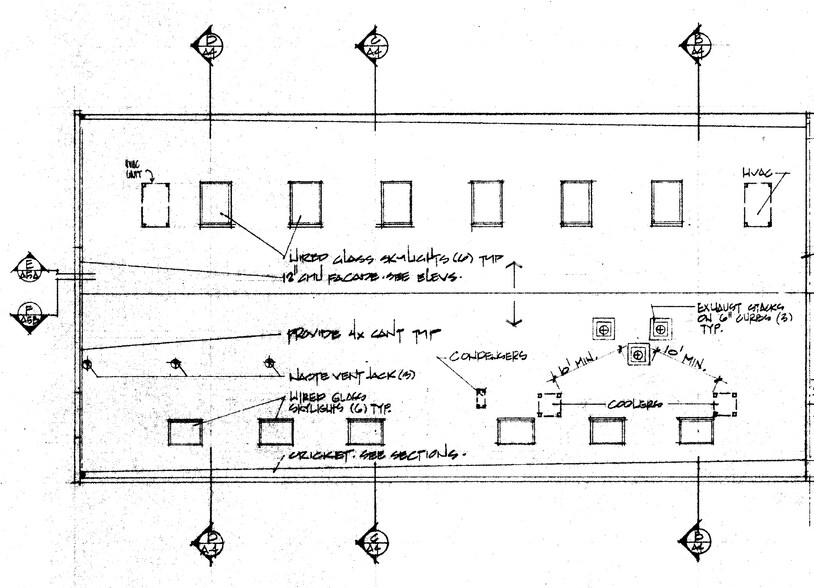 D
A4
C
A4
B
A4
HVAC
UNIT
HVAC
WIRED GLASS SKYLIGHTS (6) TYP
12" CMU FACADE · SEE ELEVS.
E
A5A
F
A5B
EXHAUST STACKS
ON 6" CURBS (3)
TYP.
PROVIDE 4x CANT TYP
CONDENSERS
10' MIN.
10' MIN.
WASTE VENT JACK (3)
WIRED GLASS
SKYLIGHTS (6) TYP.
COOLERS
CRICKET · SEE SECTIONS ·
D
A4
C
A4
B
A4